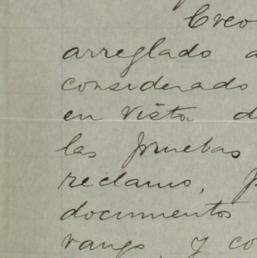 Creo
arreglado a
considerado
en vista d
las pruebas
reclamo, p
documentos
rango, y co